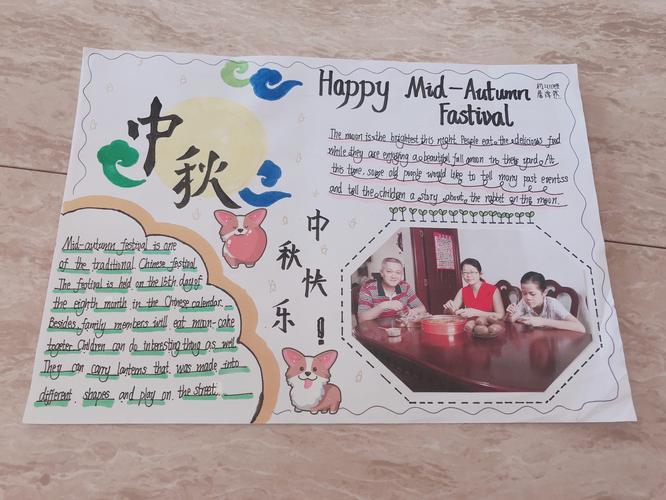 中
秋
Happy Mid-Autumn
Fastival
The moon is the brightest this night. People eat the delicious food
while they are enjoying a beautiful full moon in these yard. At
this time, some old people would like to tell many past eventss
and tell the children a story about the rabbit on the moon.
中
秋
快
乐
!
Mid-autumn festival is one
of the traditional Chinese festival.
The festival is held on the 15th day of
the eighth month in the Chinese calendar.
Besides, family members will eat moon-cake
together. Children can do interesting thing as well
They can carry lanterns that was made into
different shapes and play on the street.